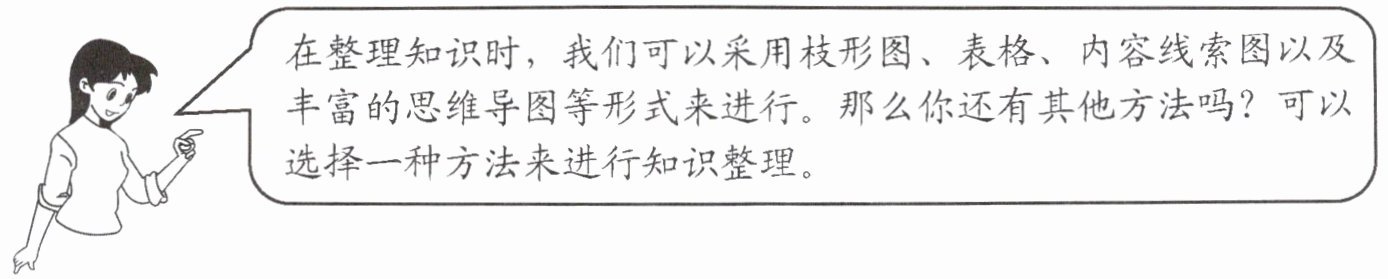 在整理知识时，我们可以采用枝形图、表格、内容线索图以及
丰富的思维导图等形式来进行。那么你还有其他方法吗？可以
选择一种方法来进行知识整理。